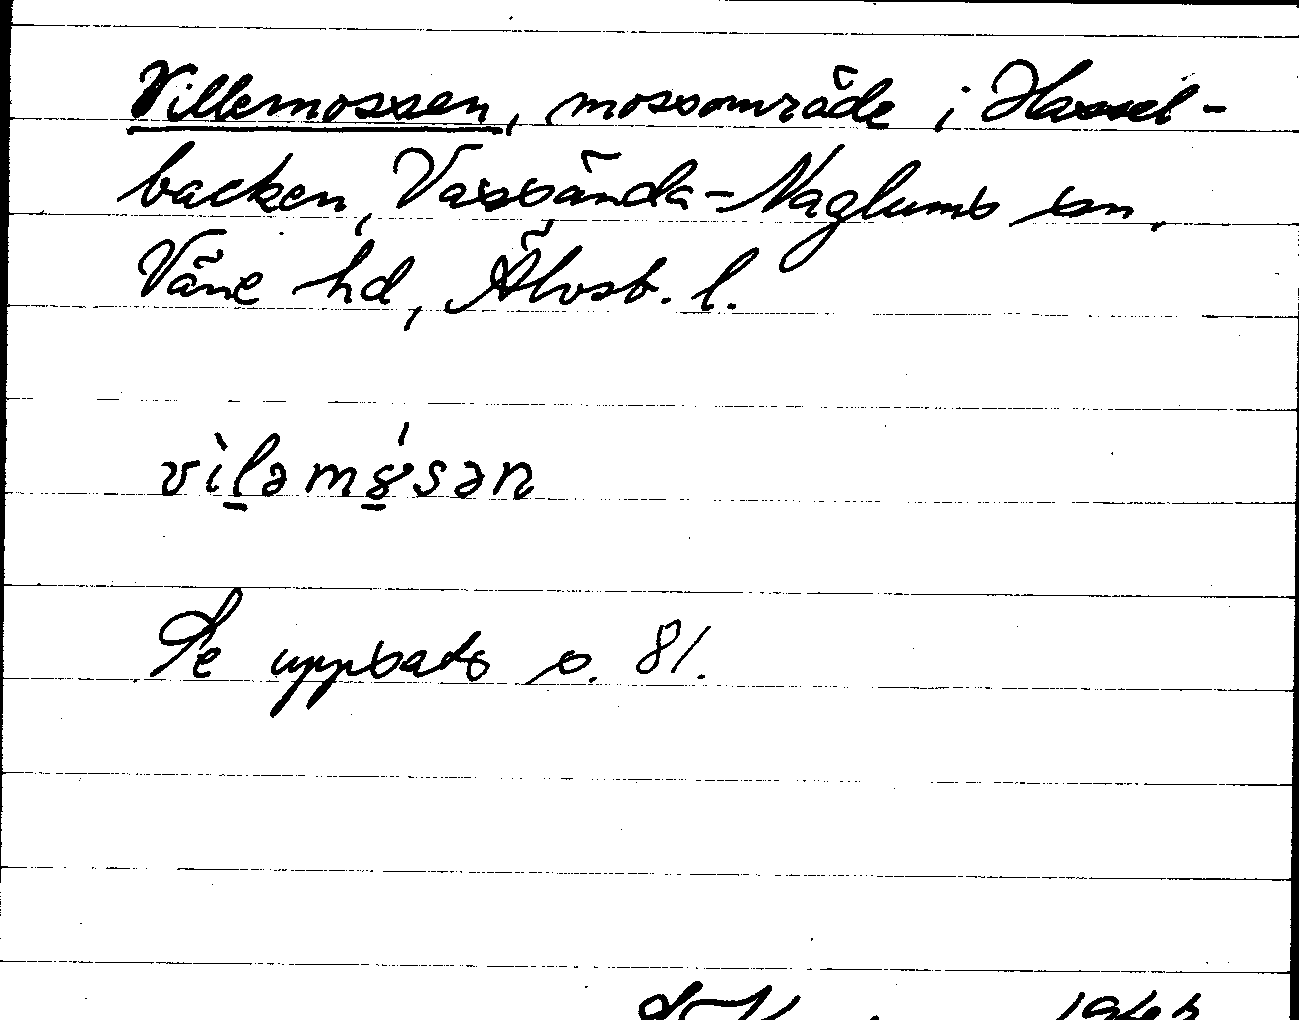 Villemossen, mossområde i Hassel-
backen, Vassända-Naglums sn,
Väne hd, Älvsb. l.
vìḷəmɣ́sən
Se uppsats s. 81.